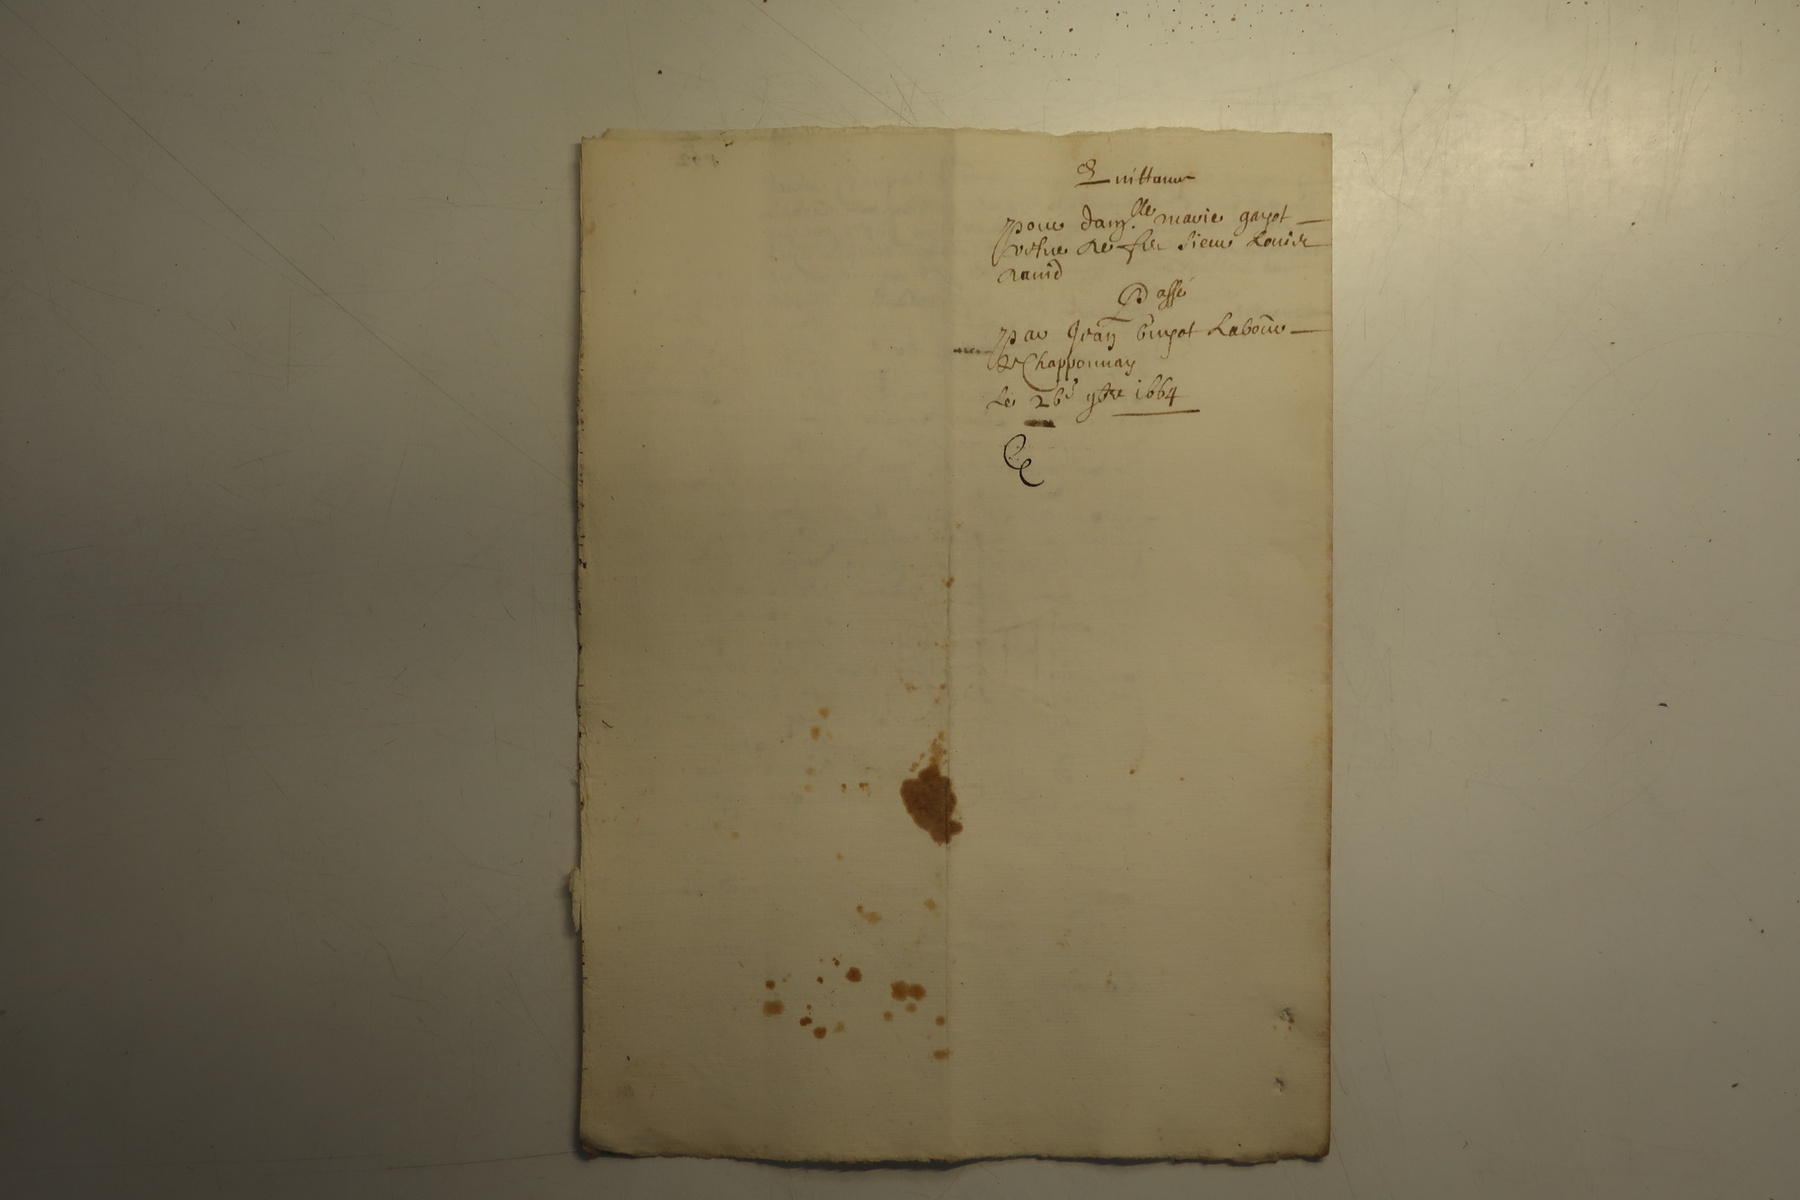 Quittance
pour dam.lle marie gayot
vefue de feu Sieur Louis
rauid
Passé
par Jean Guyot Labour
de Chapponnay
Le 26e 9bre 1664